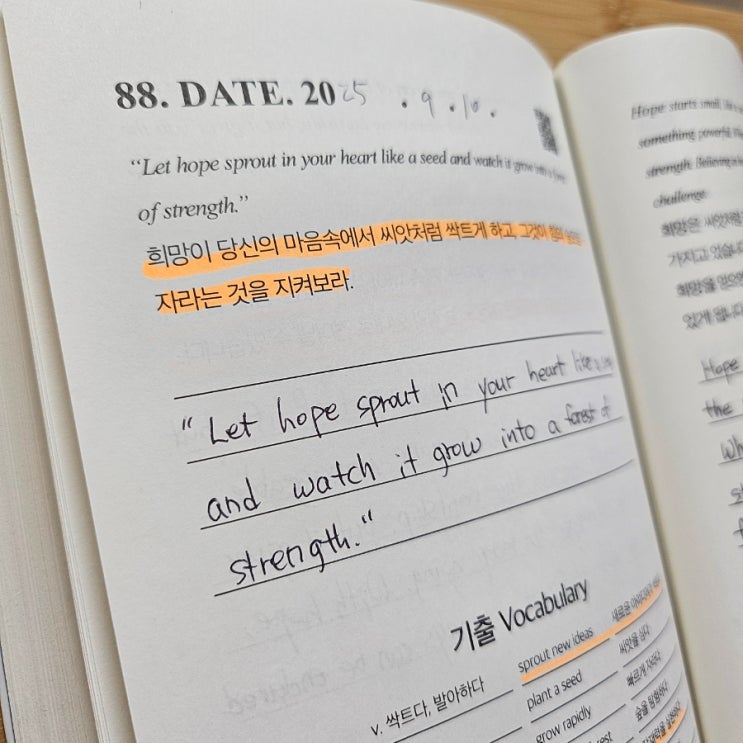 88. DATE. 2025 . 9 . 10 .
“Let hope sprout in your heart like a seed and watch it grow into a
of strength.”
희망이 당신의 마음속에서 씨앗처럼 싹트게 하고, 그것이 힘의
자라는 것을 지켜보라.
“ Let hope sprout in your heart like a
and watch it grow into a forest of
strength.“
기출 Vocabulary
v. 싹트다, 발아하다
sprout new ideas
새로운 아이디어가
plant a seed
씨앗을 심다
grow rapidly
빠르게 자라다
숲을 탐험하다
Hope starts small,
something powerful.
strength. Believing
challenge.
희망은 씨앗처럼
가지고 있습니
희망을 믿으면
있게 됩니다
Hope
the